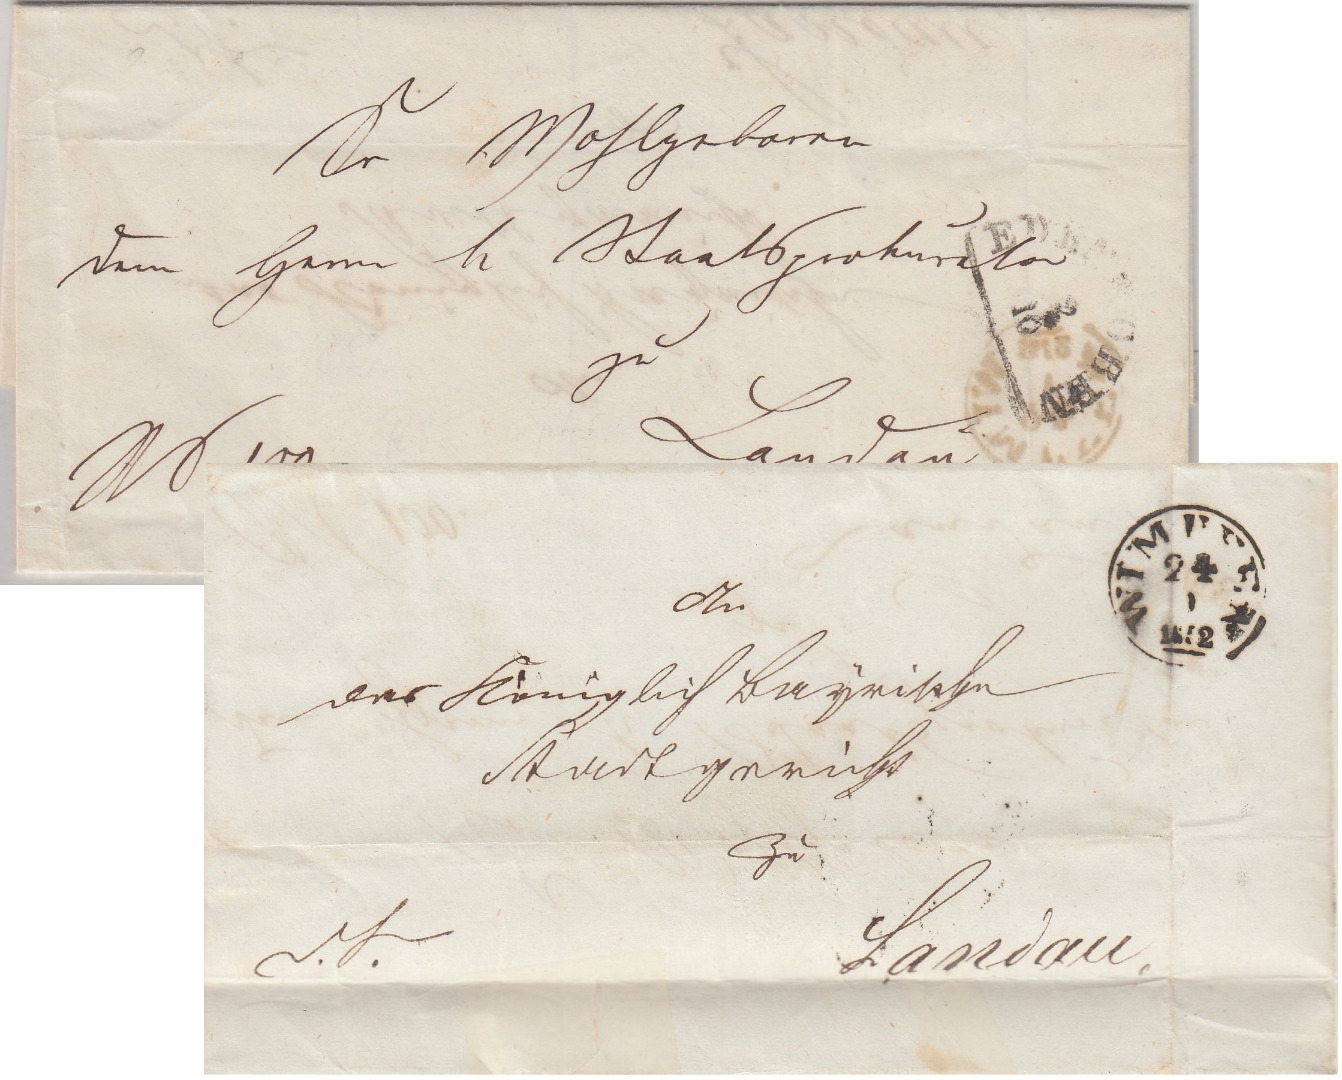 Sr Wohlgeboren
dem Herrn k Staatsprokurator
zu
Landau
EDENKOBEN
An
das Königlich Bayrische
Stadtgericht
zu
Landau.
d. S.
WIMPFEN
24
1
1852